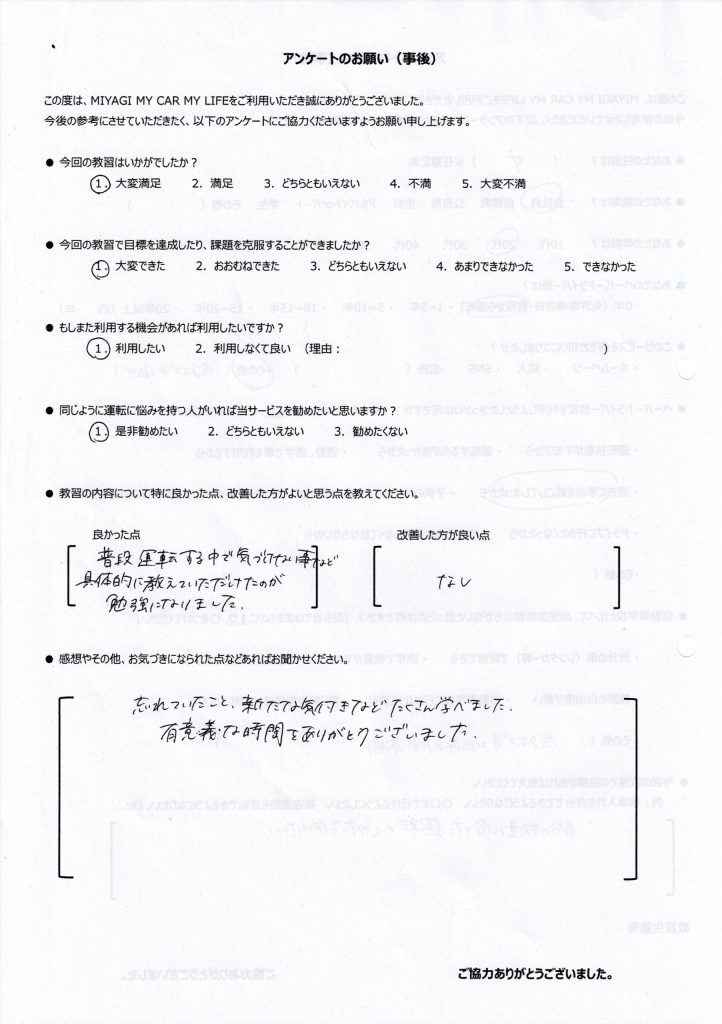 アンケートのお願い（事後）
この度は、MIYAGI MY CAR MY LIFEをご利用いただき誠にありがとうございました。
今後の参考にさせていただきたく、以下のアンケートにご協力くださいますようお願い申し上げます。
● 今回の教習はいかがでしたか？
1. 大変満足 2. 満足 3. どちらともいえない 4. 不満 5. 大変不満
● 今回の教習で目標を達成したり、課題を克服することができましたか？
1. 大変できた 2. おおむねできた 3. どちらともいえない 4. あまりできなかった 5. できなかった
● もしまた利用する機会があれば利用したいですか？
1. 利用したい 2. 利用しなくて良い （理由： ）
● 同じように運転に悩みを持つ人がいれば当サービスを勧めたいと思いますか？
1. 是非勧めたい 2. どちらともいえない 3. 勧めたくない
● 教習の内容について特に良かった点、改善した方がよいと思う点を教えてください。
良かった点 改善した方が良い点
普段運転する中で気づけない事など
具体的に教えていただけたのが
勉強になりました。
なし
● 感想やその他、お気づきになられた点などあればお聞かせください。
忘れていたこと、新たな気付きなどたくさん学べました。
有意義な時間をありがとうございました。
ご協力ありがとうございました。